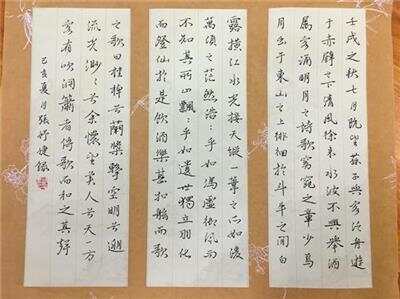 壬戌之秋七月既望蘇子與客泛舟遊
于赤壁之下清風徐來水波不興舉酒
屬客誦明月之詩歌窈窕之章少焉
月出于東山之上徘徊於斗牛之間白
露橫江水光接天縱一葦之所如凌
萬頃之茫然浩〻乎如馮虛御風而
不知其所止飄〻乎如遺世獨立羽化
而登仙於是飲酒樂甚扣舷而歌
之歌曰桂棹兮蘭槳擊空明兮遡
流光渺〻兮余懷望美人兮天一方
客有吹洞簫者倚歌而和之其聲
己亥夏月張妤婕錄